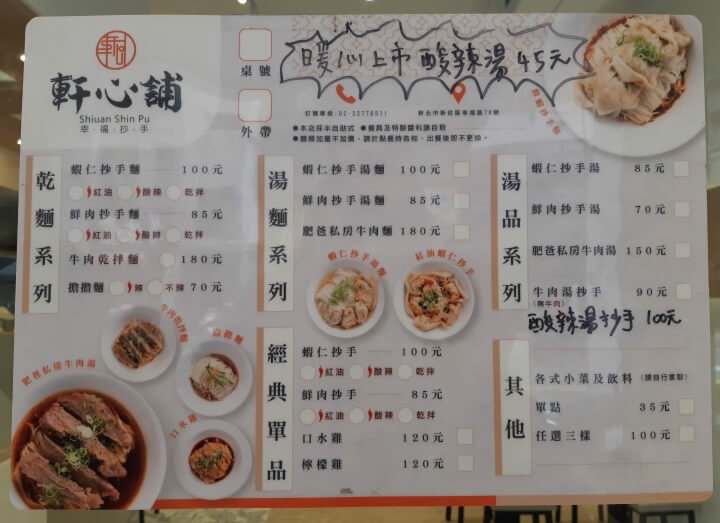 軒心舖
Shiuan Shin Pu
幸·福·抄·手
桌號
外帶
暖心上市 酸辣湯 45元
訂購專線:02-22776011
新北市新莊區幸福路78號
●本店採半自助式 ●餐具及特製醬料請自取
●麵類加量不加價，請於點餐時告知，出餐後恕不更換。
紅油抄手麵
乾麵系列
蝦仁抄手麵 100元
紅油 酸辣 乾拌
鮮肉抄手麵 85元
紅油 酸辣 乾拌
牛肉乾拌麵 180元
擔擔麵 辣 不辣 70元
牛肉乾拌麵
擔擔麵
肥爸私房牛肉湯
口水雞
湯麵系列
蝦仁抄手湯麵 100元
鮮肉抄手湯麵 85元
肥爸私房牛肉麵 180元
蝦仁抄手湯麵
紅油蝦仁抄手
經典單品
蝦仁抄手 100元
紅油 酸辣 乾拌
鮮肉抄手 85元
紅油 酸辣 乾拌
口水雞 120元
檸檬雞 120元
湯品系列
蝦仁抄手湯 85元
鮮肉抄手湯 70元
肥爸私房牛肉湯 150元
牛肉湯抄手 90元
(無牛肉)
酸辣湯抄手 100元
其他
各式小菜及飲料 (請自行拿取)
單點 35元
任選三樣 100元